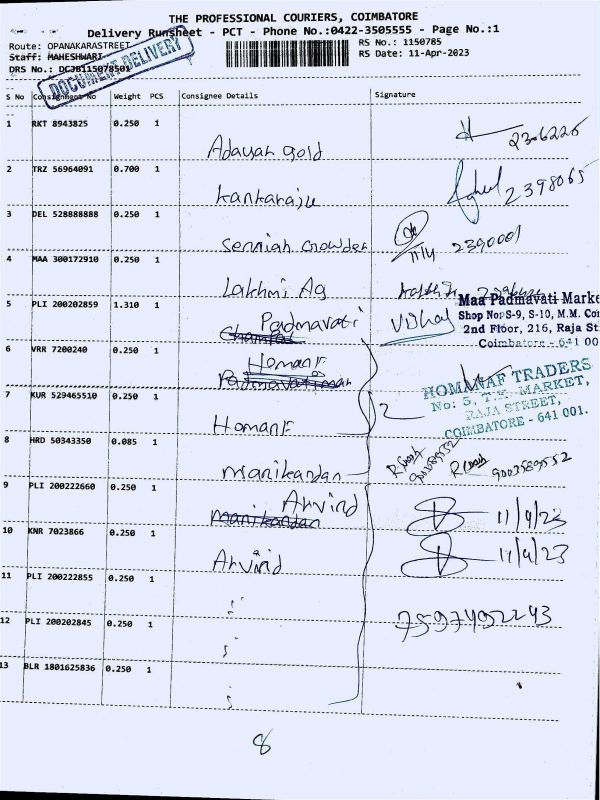 THE PROFESSIONAL COURIERS, COIMBATORE
Delivery Runsheet - PCT - Phone No.:0422-3505555 - Page No.:1
Route: OPANAKARASTREET
RS No.: 1150785
Staff: MAHESHWARI
RS Date: 11-Apr-2023
DRS No.: DCJB115078501
DOCUMENT DELIVERY
S No Consignment No Weight PCS Consignee Details Signature
1 RKT 8943825 0.250 1
Adayar gold
2306225
2 TRZ 56964091 0.700 1
Kankaraju
2398065
3 DEL 528888888 0.250 1
Senniah Crowder
11/4 2390001
4 MAA 300172910 0.250 1
Lakhmi Ag
5 PLI 200202859 1.310 1
Padmavati
Vishal
Maa Padmavati Marke
Shop No S-9, S-10, M.M. Co
2nd Floor, 216, Raja St
Coimbatore - 641 00
6 VRR 7200240 0.250 1
HomanF
HOMANAF TRADERS
No: 5, T.K. MARKET,
RAJA STREET,
COIMBATORE - 641 001.
7 KUR 529465510 0.250 1
HomanF
2
8 HRD 50343350 0.085 1
Manikandan
9003589552
9 PLI 200222660 0.250 1
Arvind
Manikandan
11/4/23
10 KNR 7023866 0.250 1
Arvind
11/4/23
11 PLI 200222855 0.250 1
12 PLI 200202845 0.250 1
7597492243
13 BLR 1801625836 0.250 1
8